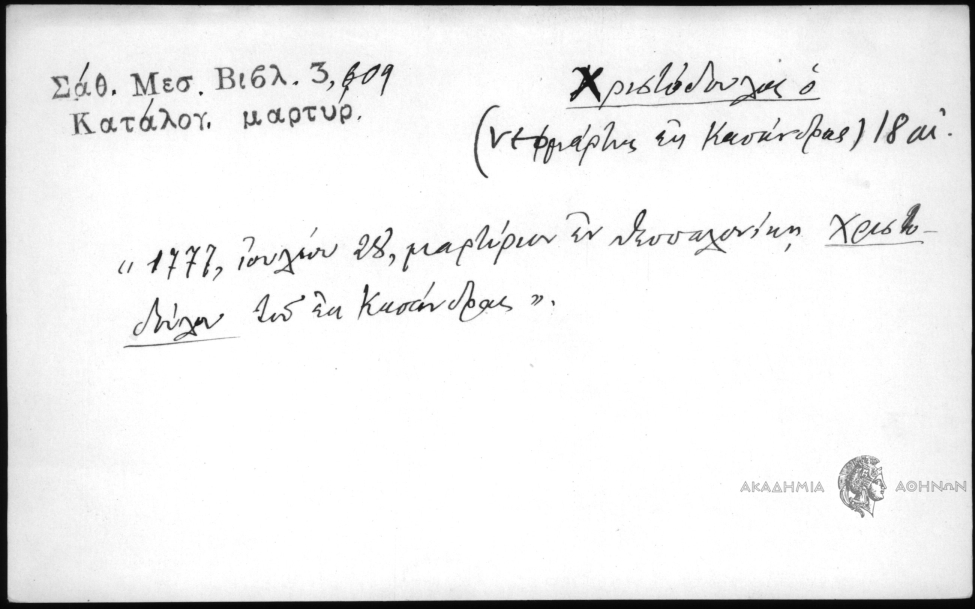 Σάθ. Μεσ. Βιβλ. 3, 609
Κατάλογ. μαρτυρ.
Χριστόδουλος ὁ
(νεομάρτυς ἐκ Κασάνδρας) 18 αἰ.
« 1777, Ἰουλίου 28, μαρτύριον ἐν Θεσσαλονίκῃ Χριστο-
δούλου τοῦ ἐκ Κασάνδρας ».
ΑΚΑΔΗΜΙΑ ΑΘΗΝΩΝ